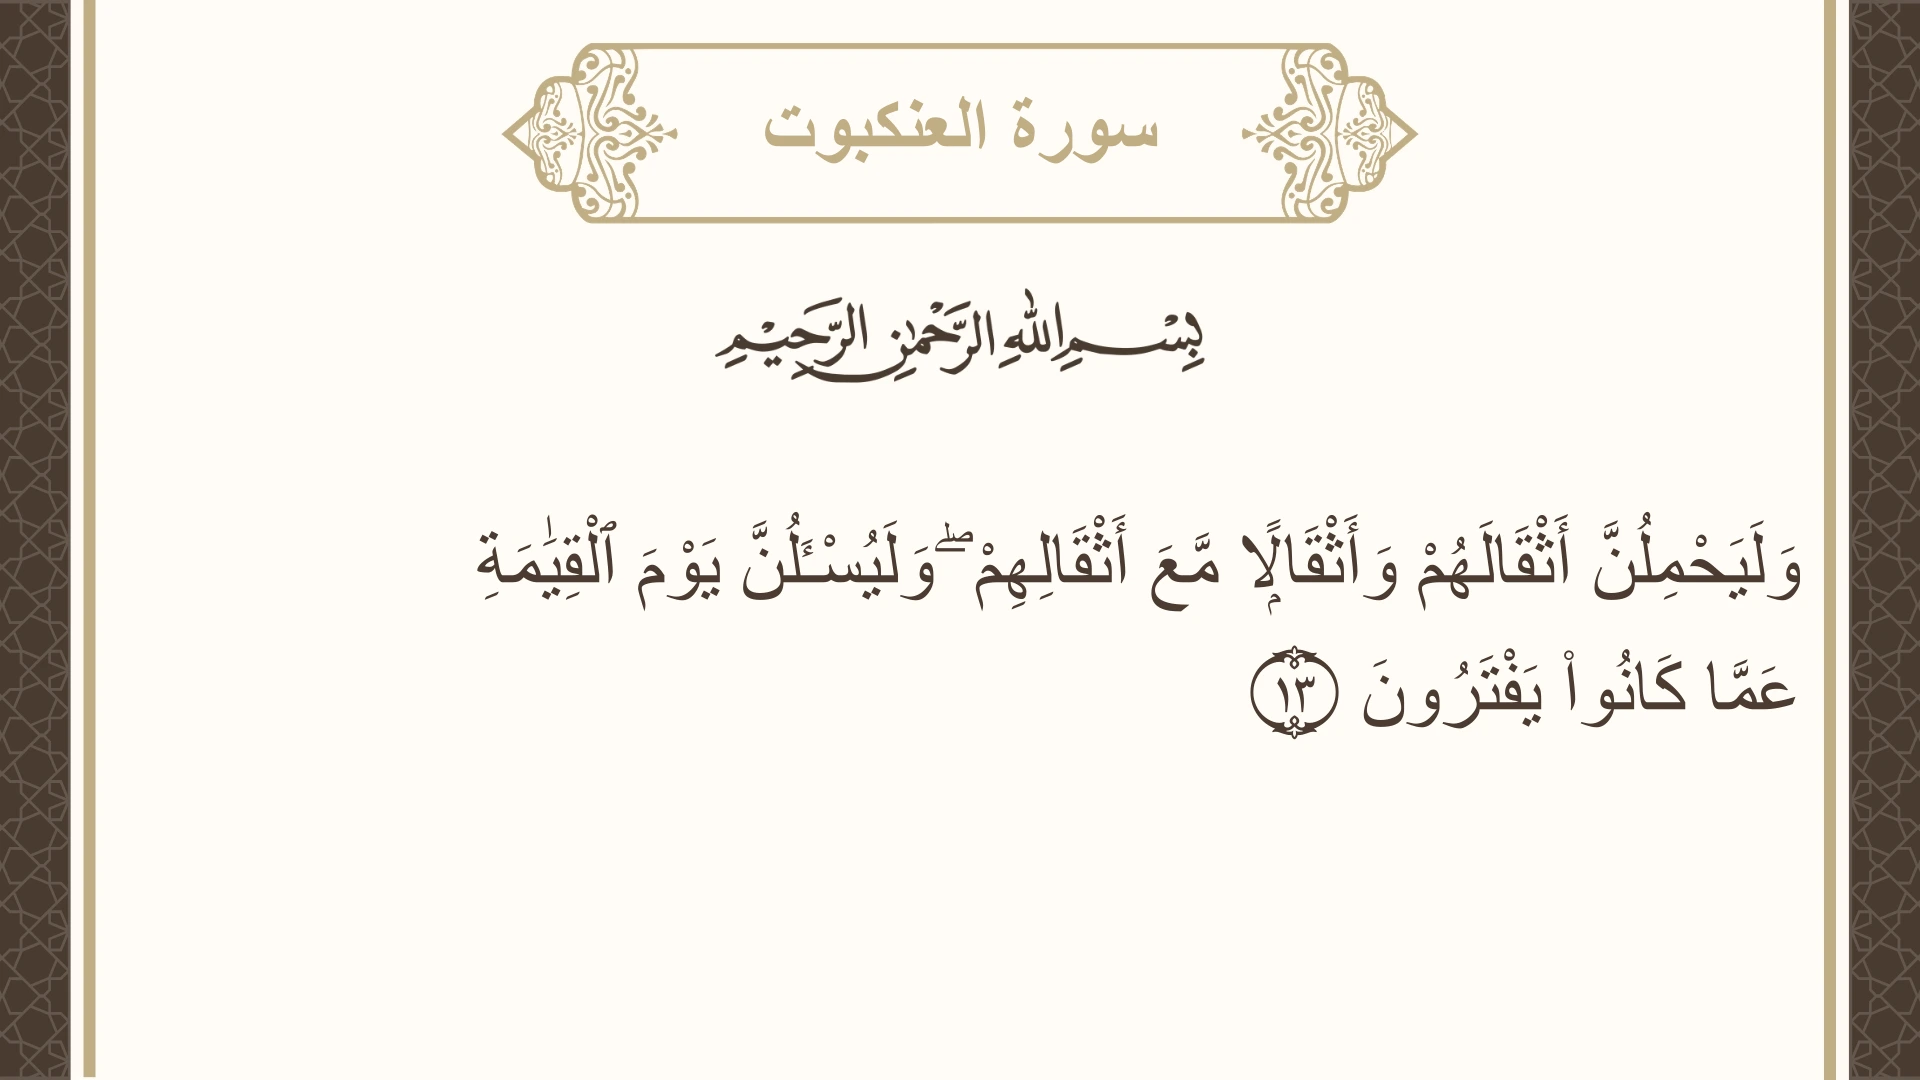 سورة العنكبوت
بِسْمِ اللهِ الرَّحْمٰنِ الرَّحِيْمِ
وَلَيَحْمِلُنَّ أَثْقَالَهُمْ وَأَثْقَالًۭا مَّعَ أَثْقَالِهِمْ ۖ وَلَيُسْـَٔلُنَّ يَوْمَ ٱلْقِيَٰمَةِ
عَمَّا كَانُوا۟ يَفْتَرُونَ ١٣